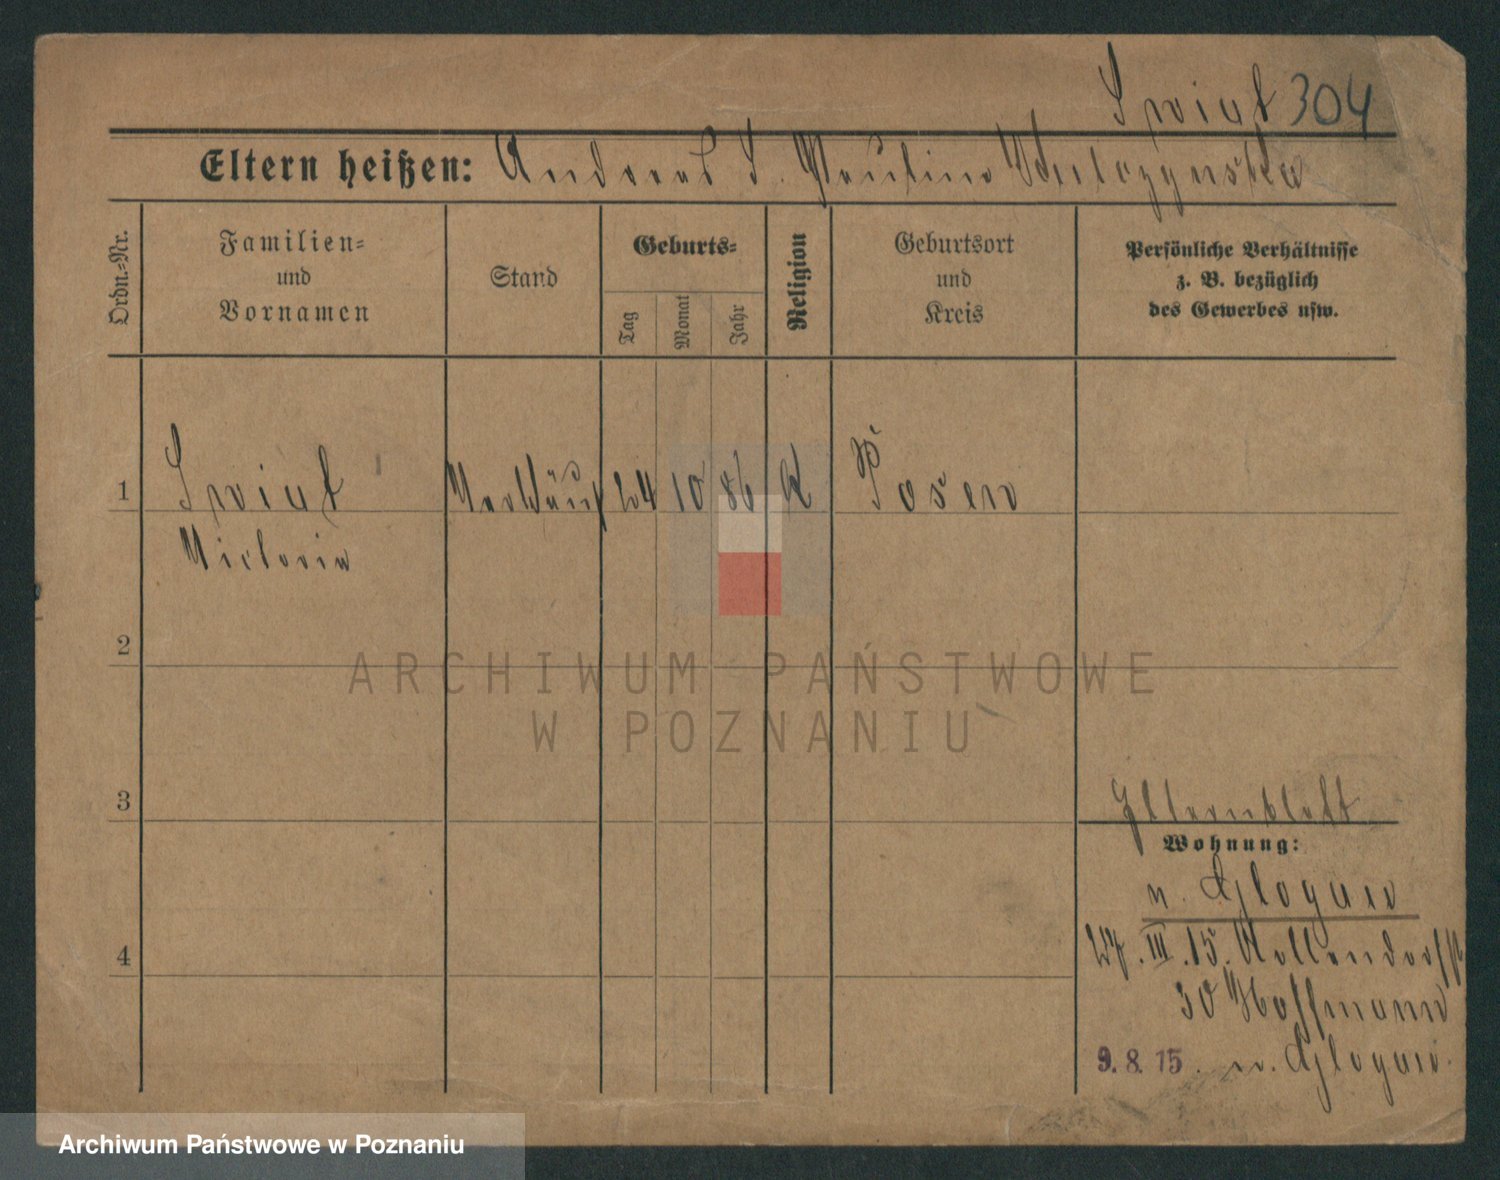 Swiat 304
Eltern heißen: Andreas S. Paulina Wilczynska
Ordn.=Nr.
Familien=
und
Vornamen
Stand
Geburts=
Tag
Monat
Jahr
Religion
Geburtsort
und
Kreis
Persönliche Verhältnisse
z. B. bezüglich
des Gewerbes usw.
1 Swiat Verkäuf 24 10 86 K Posen
Victoria
2
ARCHIWUM PAŃSTWOWE
W POZNANIU
3
Elternblatt
Wohnung:
n. Glogau
4
27. III. 15. Nollendorfst
30 Hoffmann
9. 8. 15. n. Glogau.
Archiwum Państwowe w Poznaniu